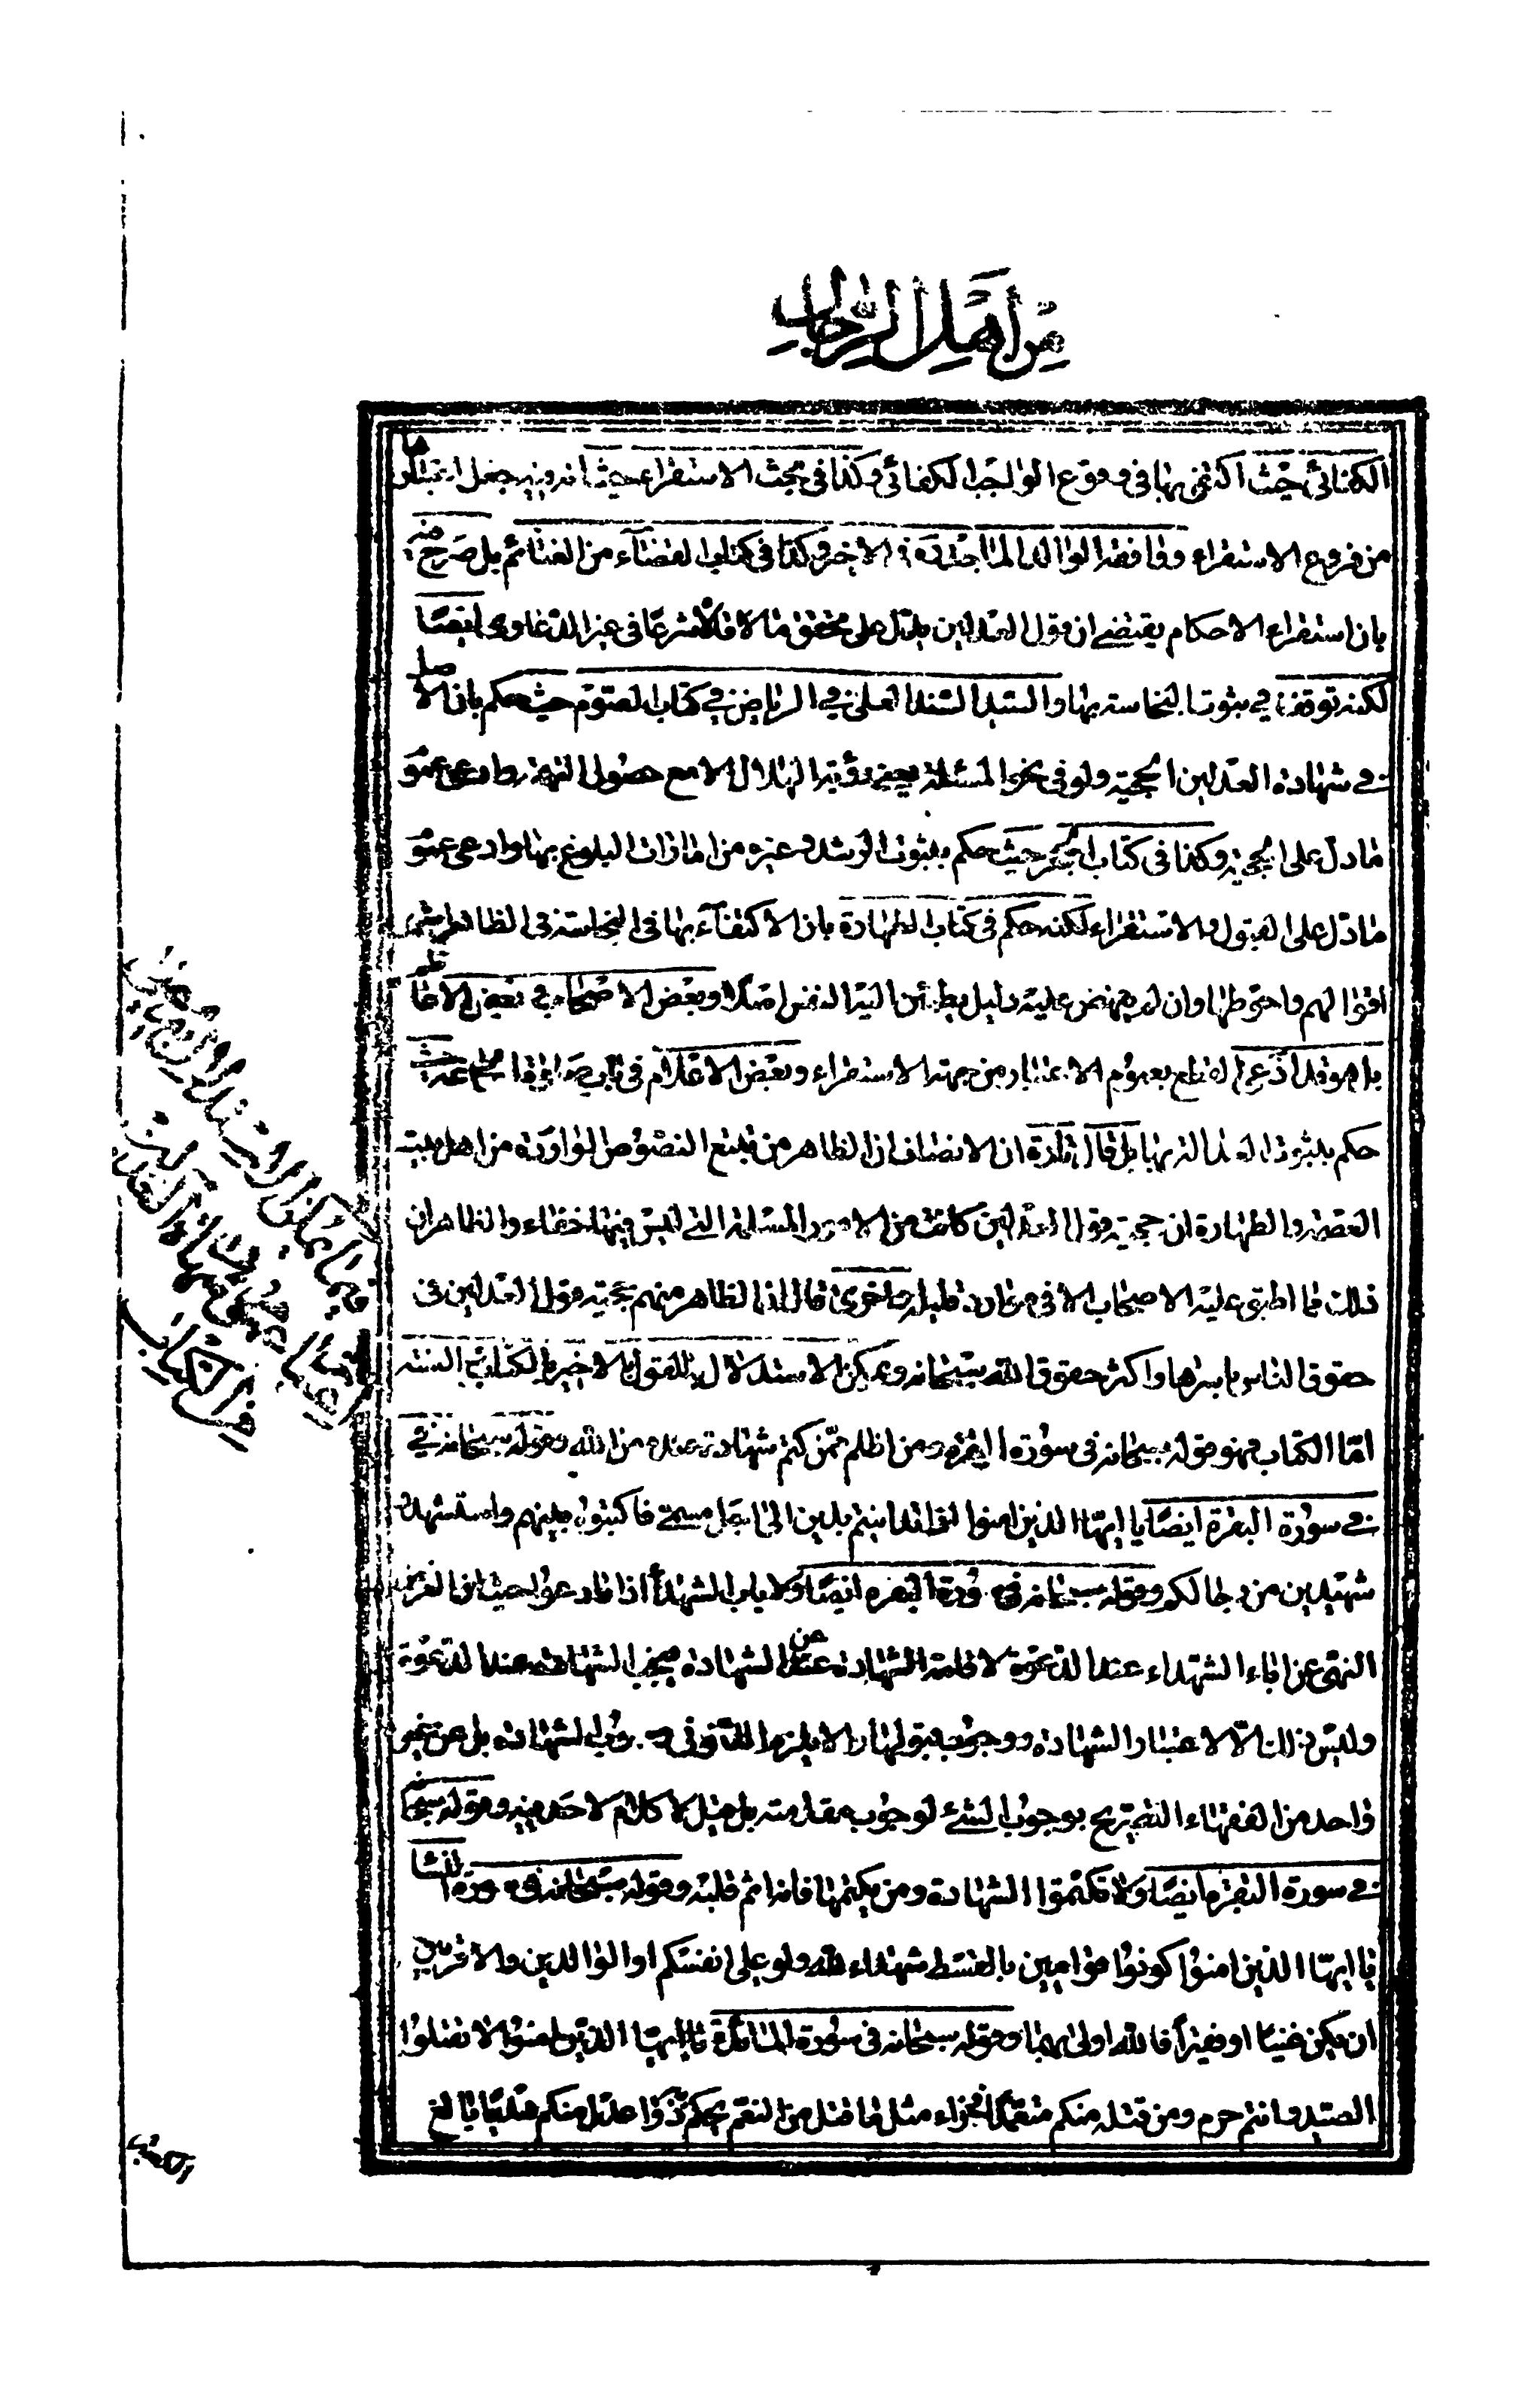 من أهل الرجال
الكفائي حيث اكتفى بها في وقوع الواجب الكفائي وكذا في بحث الاستقراء حيث انه جعل اعتبارها
من فروع الاستقراء ووافقه الوالد الماجد ره في الاخير وكذا في كتاب القضاء من الغنائم بل صرح فيه
بان استقراء الاحكام يقتضي ان قول العدلين يدل على تحقق ما لا قلا شرعا في غير الدعاوى ايضا
لكنه توقف في ثبوت النجاسة بها والسيد السند العلي في الرياض في كتاب الصوم حيث حكم بان الاصل
في شهادة العدلين الحجية ولو في نحو المسئلة يعني رؤية الهلال الا مع حصول التهمة وادعى عموم
ما دل على الحجية وكذا في كتاب الحجر حيث حكم بثبوت الرشد وغيره من امارات البلوغ بها وادعى عموم
ما دل على القبول والاستقراء لكنه حكم في كتاب الطهارة بان الاكتفاء بها في النجاسة في الظاهر اشهر
اقوالهم واحوطها وان لم ينهض عليه دليل يطمئن اليه النفس اصلا وبعض الاصحاب في بعض الاحاظه
بل هو قد ادعى القطع بعموم الاعتبار من جهة الاستقراء وبعض الاعلام في باب حيث
حكم بثبوت العدالة بها بل قال تارة ان الانصاف ان الظاهر من تتبع النصوص الواردة من اهل بيت
العصمة والطهارة ان حجية قول العدلين كانت من الامور المسلمة التي ليس فيها خفاء والظاهر ان
ذلك مما اطبق عليه الاصحاب الا في موارد قليلة واخرى قال اذ الظاهر منهم حجية قول العدلين في
حقوق الناس باسرها واكثر حقوق الله سبحانه ويمكن الاستدلال للقول الاخير بالكتاب والسنة
اما الكتاب فهو قوله سبحانه في سورة البقرة ومن اظلم ممن كتم شهادة عنده من الله وقوله سبحانه في
في سورة البقرة ايضا يا ايها الذين امنوا اذا تداينتم بدين الى اجل مسمى فاكتبوه بينهم واستشهدوا
شهيدين من رجالكم وقوله سبحانه في سورة البقرة ايضا ولا ياب الشهدا اذا ما دعوا حيث ان الغرض
النهي عن اباء الشهداء عند الدعوة لاقامة الشهادة عن الشهادة فيجب الشهادة عند الدعوة
وليس ذلك الا لاعتبار الشهادة ووجوب قبولها والا يلزم اللغو في وجوب الشهادة بل عن غير
واحد من الفقهاء التصريح بوجوب الشئ لوجوب مقدمته بل قيل لا كلام لاحد فيه وقوله سبحانه
في سورة البقرة ايضا ولا تكتموا الشهادة ومن يكتمها فانه اثم قلبه وقوله سبحانه في سورة النساء
يا ايها الذين امنوا كونوا قوامين بالقسط شهداء لله ولو على انفسكم او الوالدين والاقربين
ان يكن غنيا او فقيرا فالله اولى بهما وقوله سبحانه في سورة المائدة يا ايها الذين امنوا لا تقتلوا
الصيد وانتم حرم ومن قتله منكم متعمدا فجزاء مثل ما قتل من النعم يحكم به ذوا عدل منكم هديا بالغ